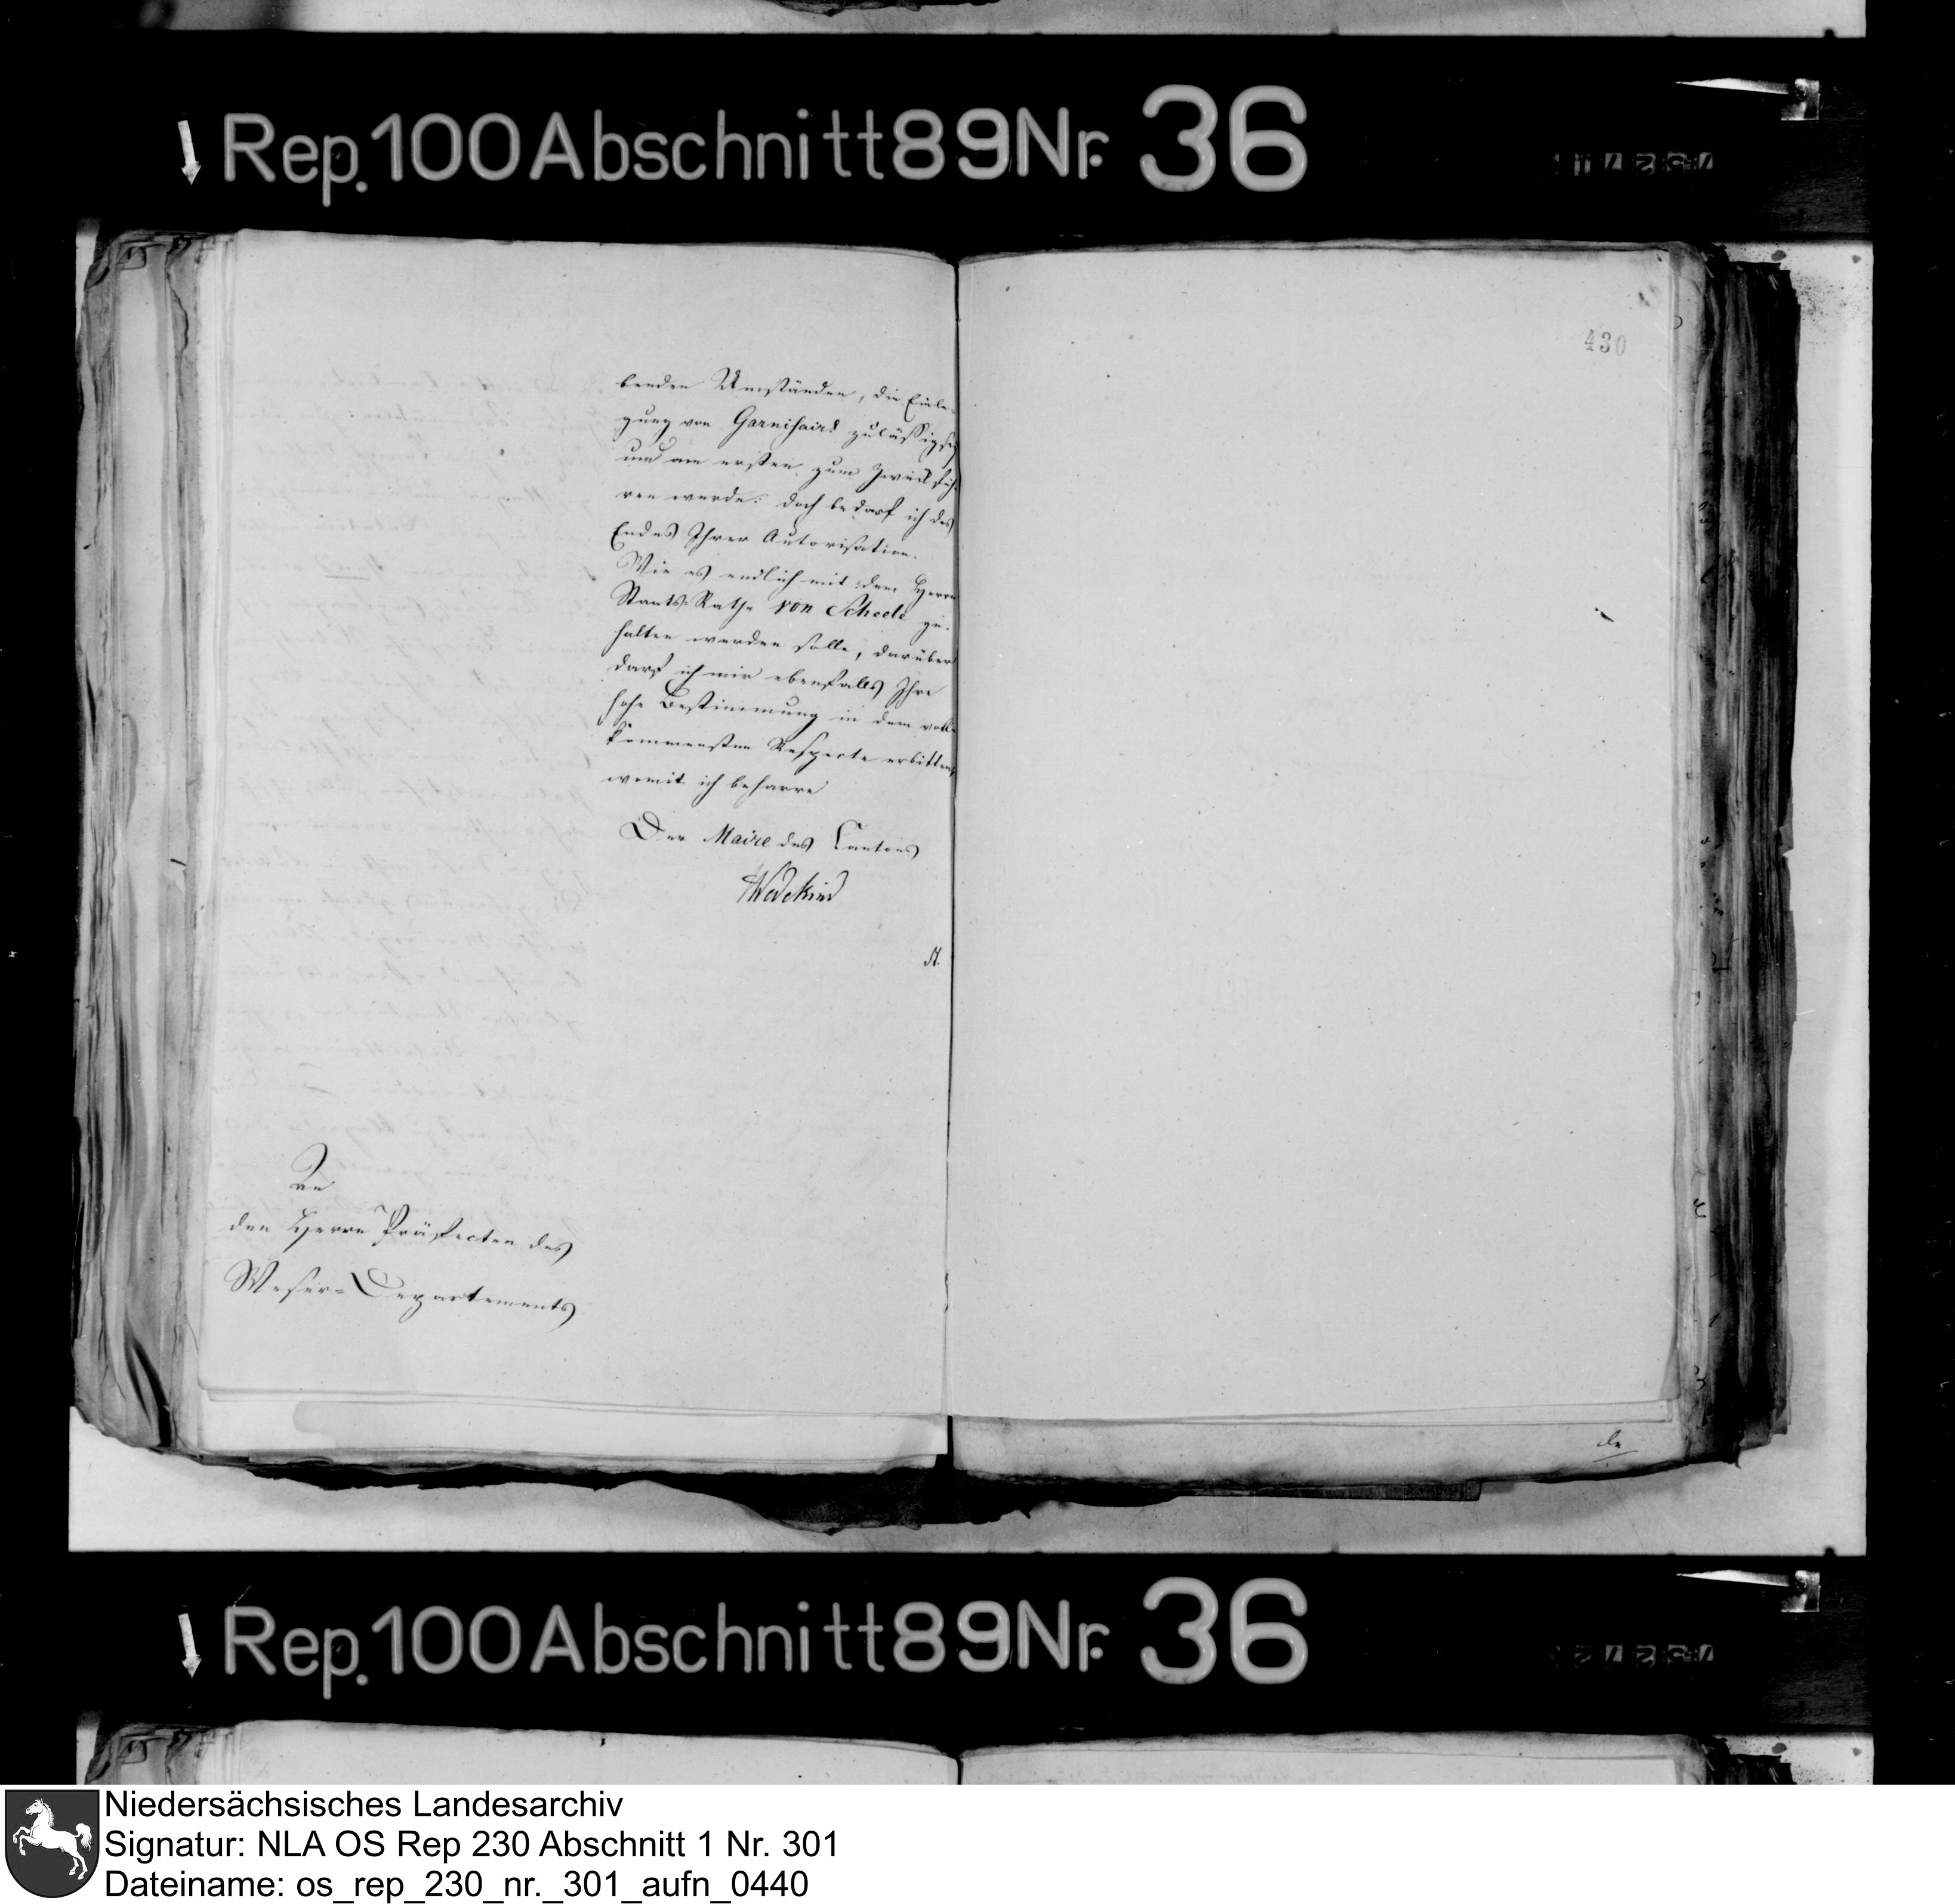 Rep. 100 Abschnitt 89 Nr. 36
430
benden Umständen, die Einle-
gung von Garnisairs zulässig sey
und am ersten zum Zweck füh-
ren werde: doch bedarf ich des
Endes Ihrer Autorisation.
Wie es endlich mit dem Herrn
Staats-Rathe von Scheele ge-
halten werden solle, darüber
darf ich mir ebenfalls Ihre
hohe Bestimmung in dem voll-
kommensten Respecte erbitten,
womit ich beharre
Der Maire des Cantons
Wedekind
An
den Herrn Präfecten des
Weser-Departements
Rep. 100 Abschnitt 89 Nr. 36
Niedersächsisches Landesarchiv
Signatur: NLA OS Rep 230 Abschnitt 1 Nr. 301
Dateiname: os_rep_230_nr._301_aufn_0440